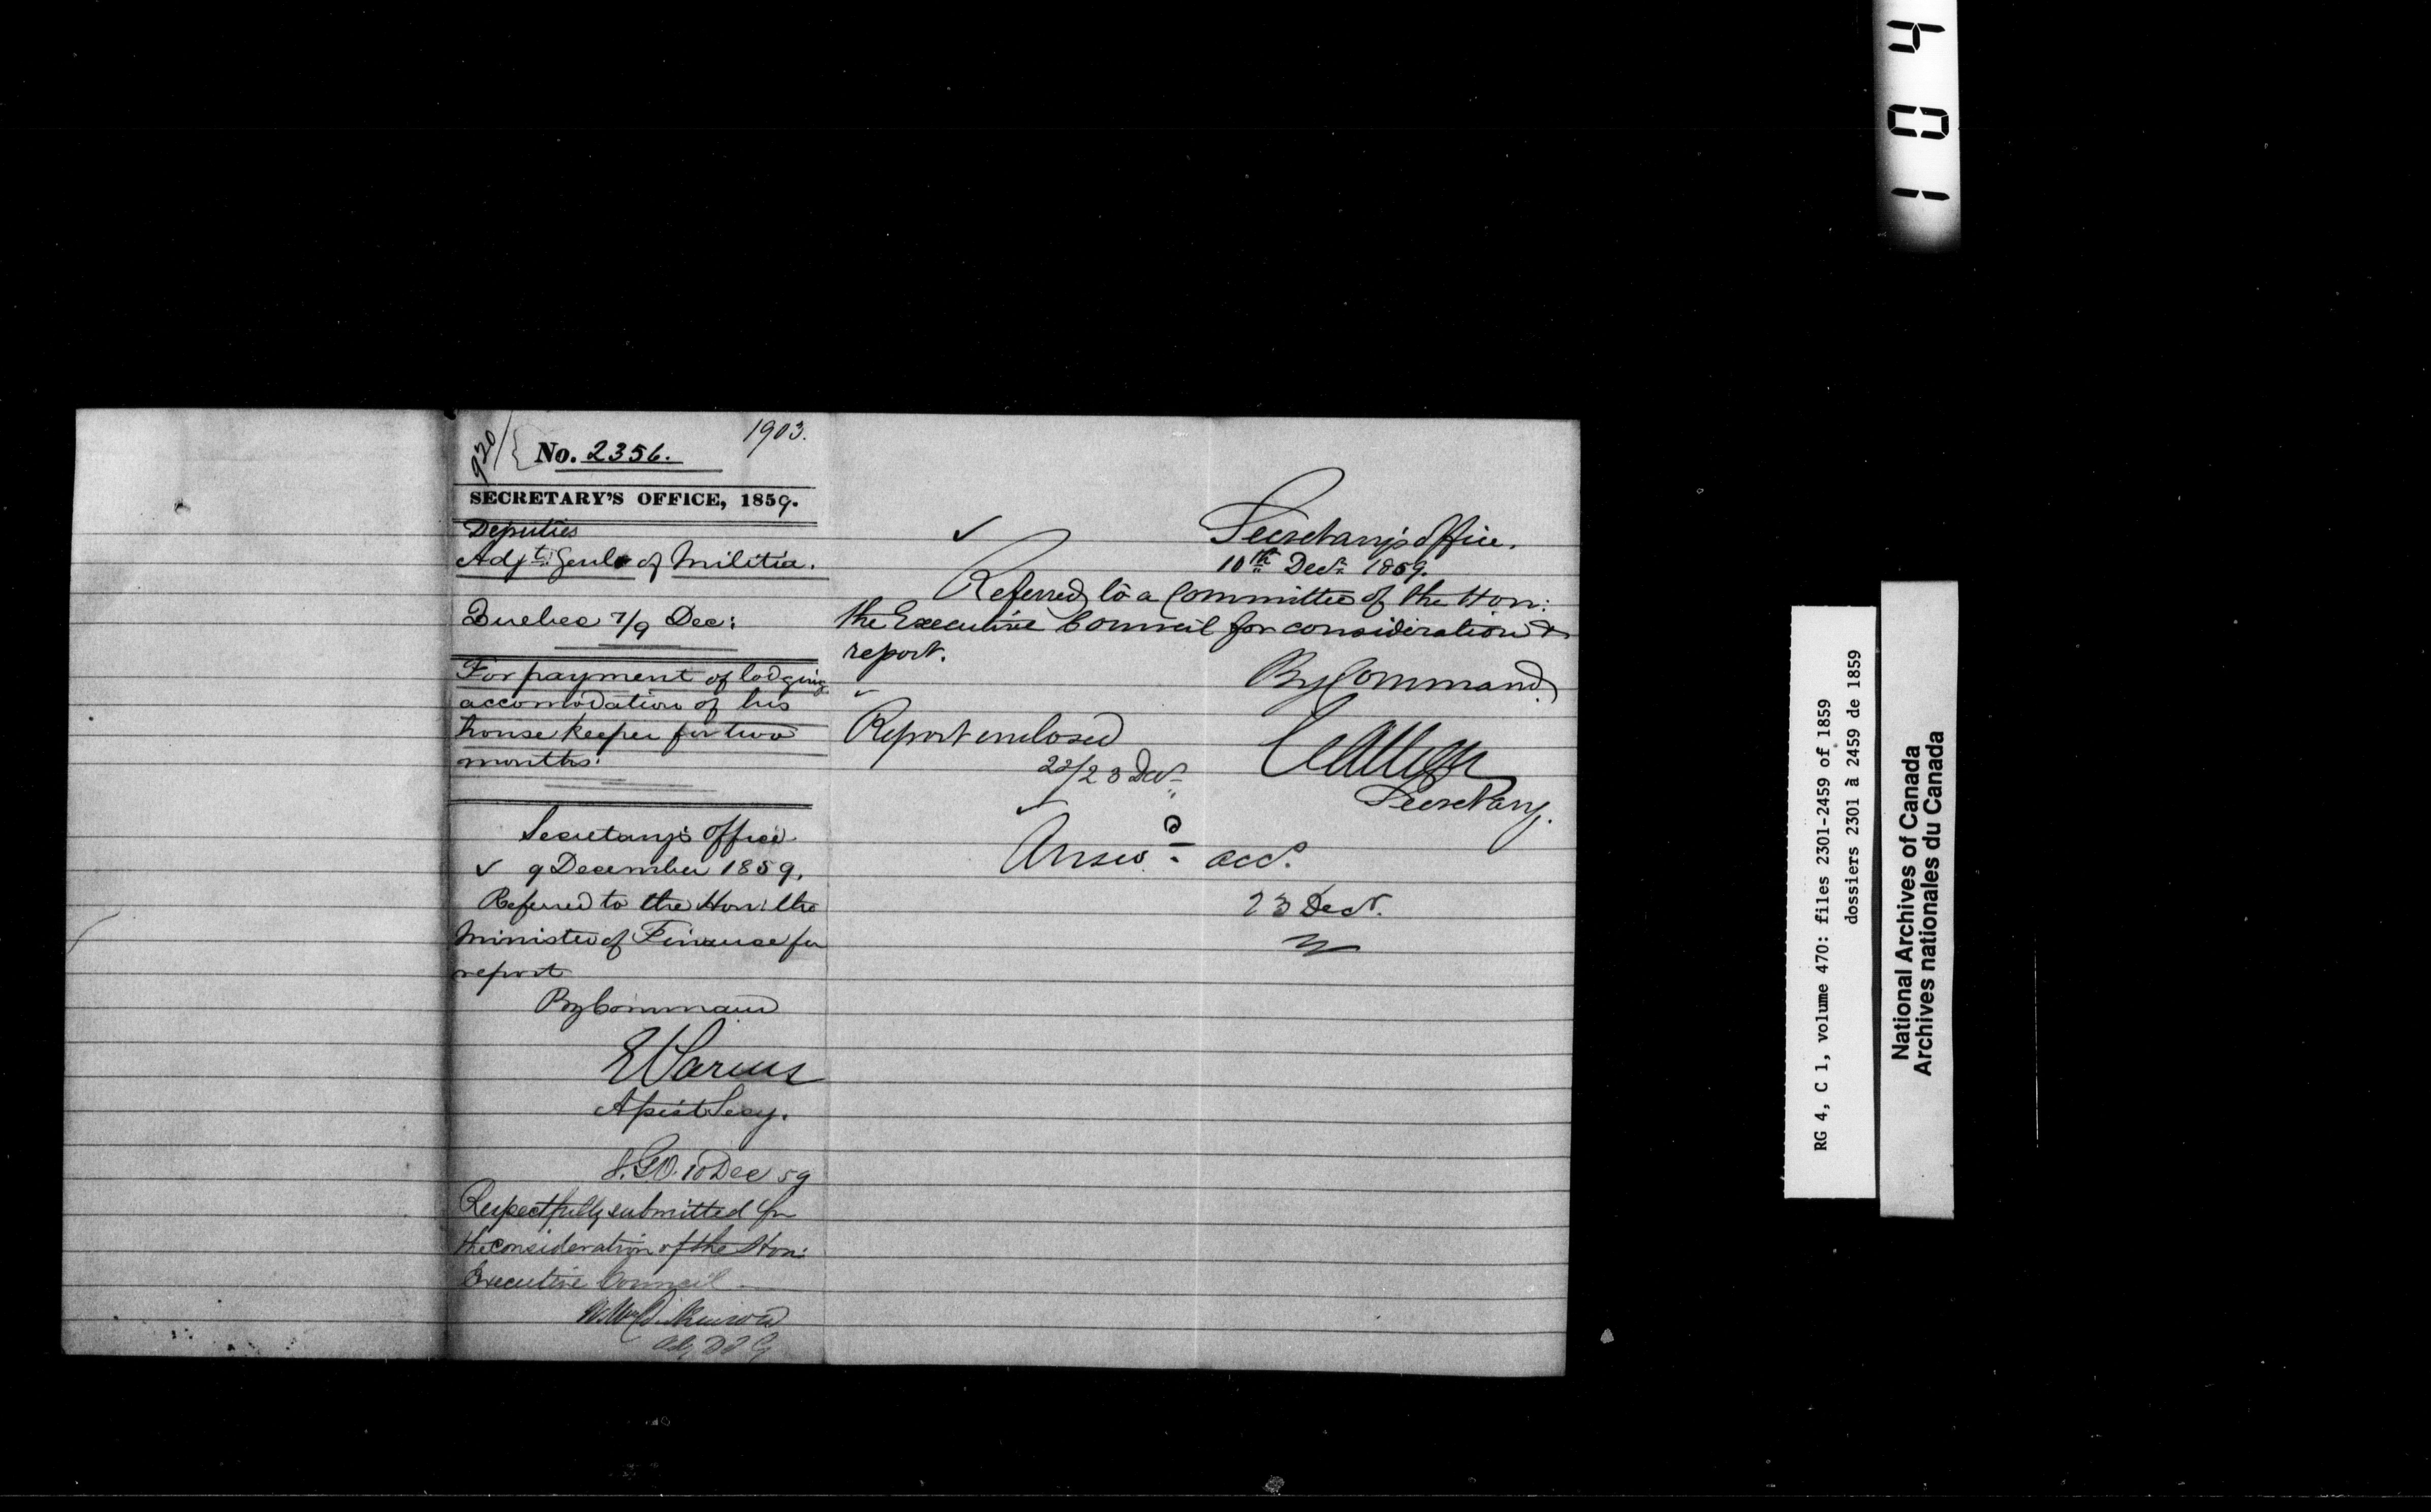 920
1903.
No. 2356.
SECRETARY'S OFFICE, 1859.
Deputies
Adjt. Genls of Militia.
Quebec 7/9 Dec:
For payment of lodging
accomodation of his
house keeper for two
months.
Secretary's Office
9 December 1859.
Referred to the Hon: the
Minister of Finance for
report
By Command
E Parent
Assist Secy.
I.G.O. 10 Dec 59
Respectfully submitted for
the consideration of the Hon:
Executive Council
Dickinson
Secretary's Office.
10th Decr. 1859.
Referred to a Committee of the Hon:
the Executive Council for consideration &
report.
By Command
Secretary.
Report enclosed
22/23 Decr.
Answd. accd.
23 Decr.
104
RG 4, C 1, volume 470: files 2301-2459 of 1859
dossiers 2301 à 2459 de 1859
National Archives of Canada
Archives nationales du Canada